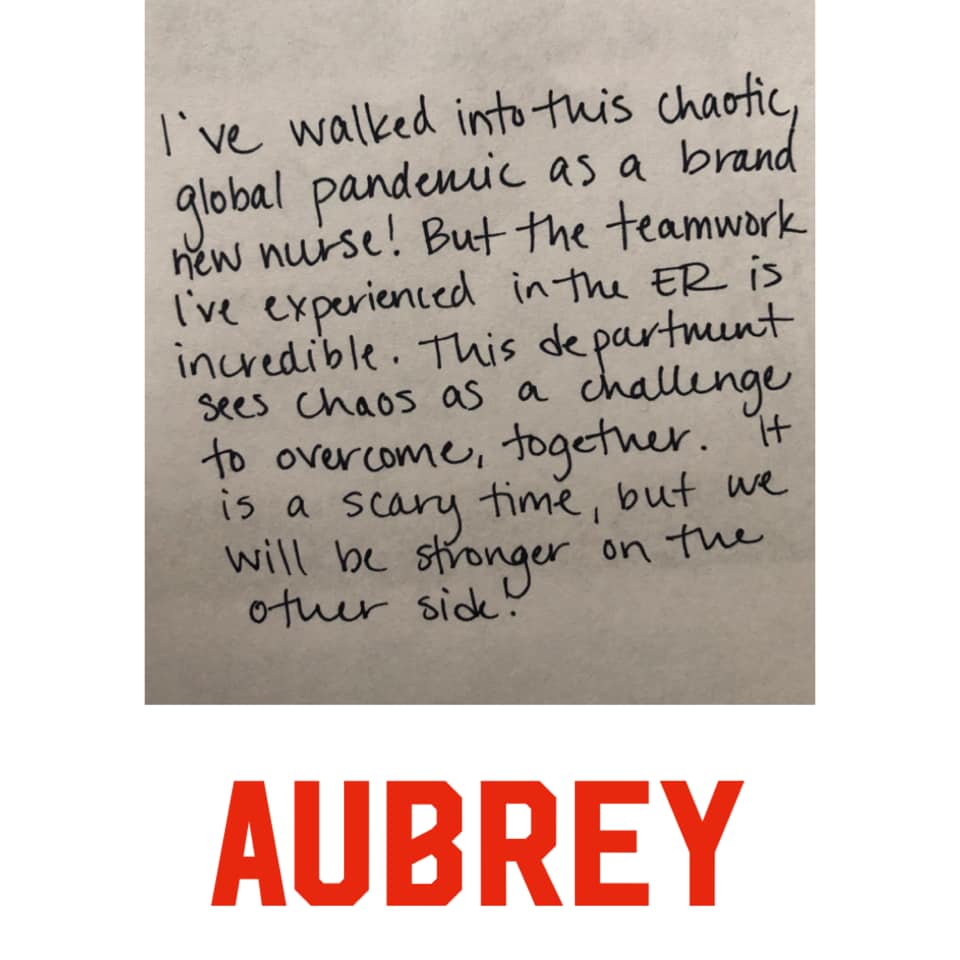 I've walked into this chaotic,
global pandemic as a brand
new nurse! But the teamwork
I've experienced in the ER is
incredible. This department
sees chaos as a challenge
to overcome, together. It
is a scary time, but we
will be stronger on the
other side!
AUBREY